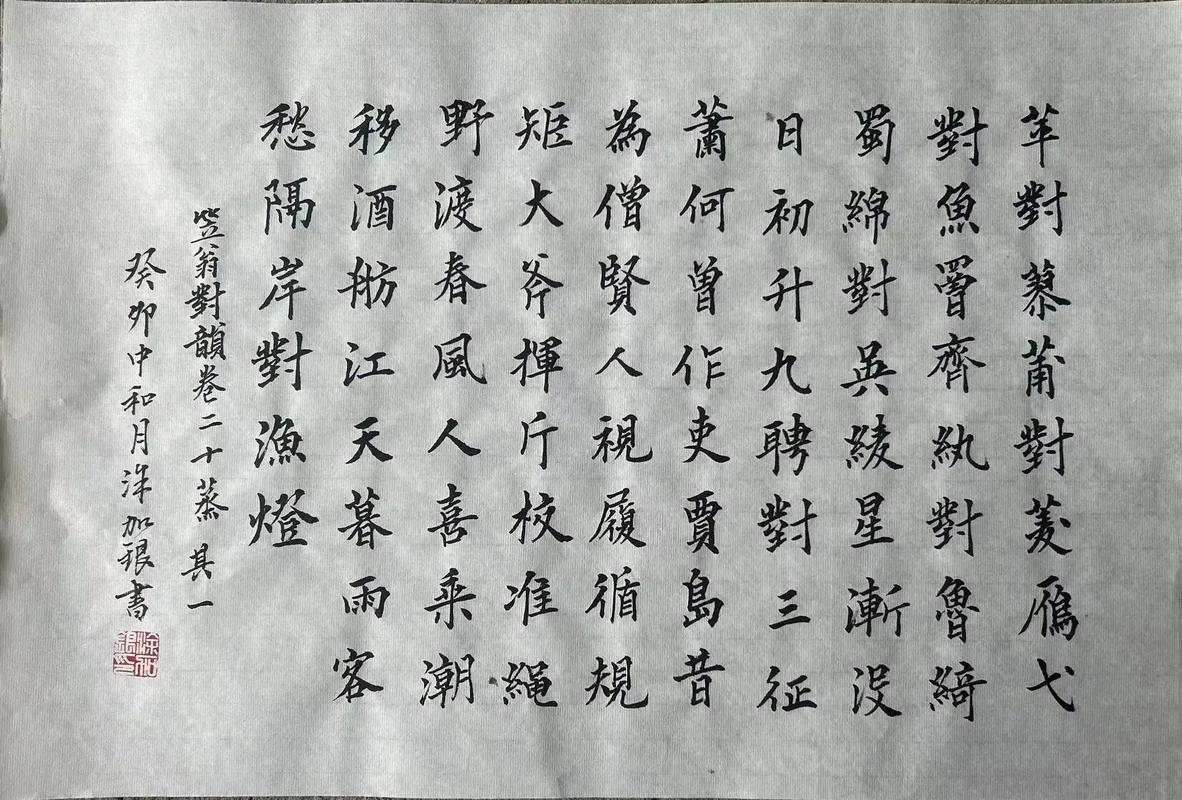 苹對蓼莆對菱雁弋
對魚罾齊紈對魯綺
蜀綿對吳綾星漸没
日初升九聘對三征
蕭何曾作吏賈島昔
為僧賢人視履循規
矩大斧揮斤校准繩
野渡春風人喜乘潮
移酒舫江天暮雨客
愁隔岸對漁燈
笠翁對韻卷二十蒸其一
癸卯中和月涂加银書
涂加銀印